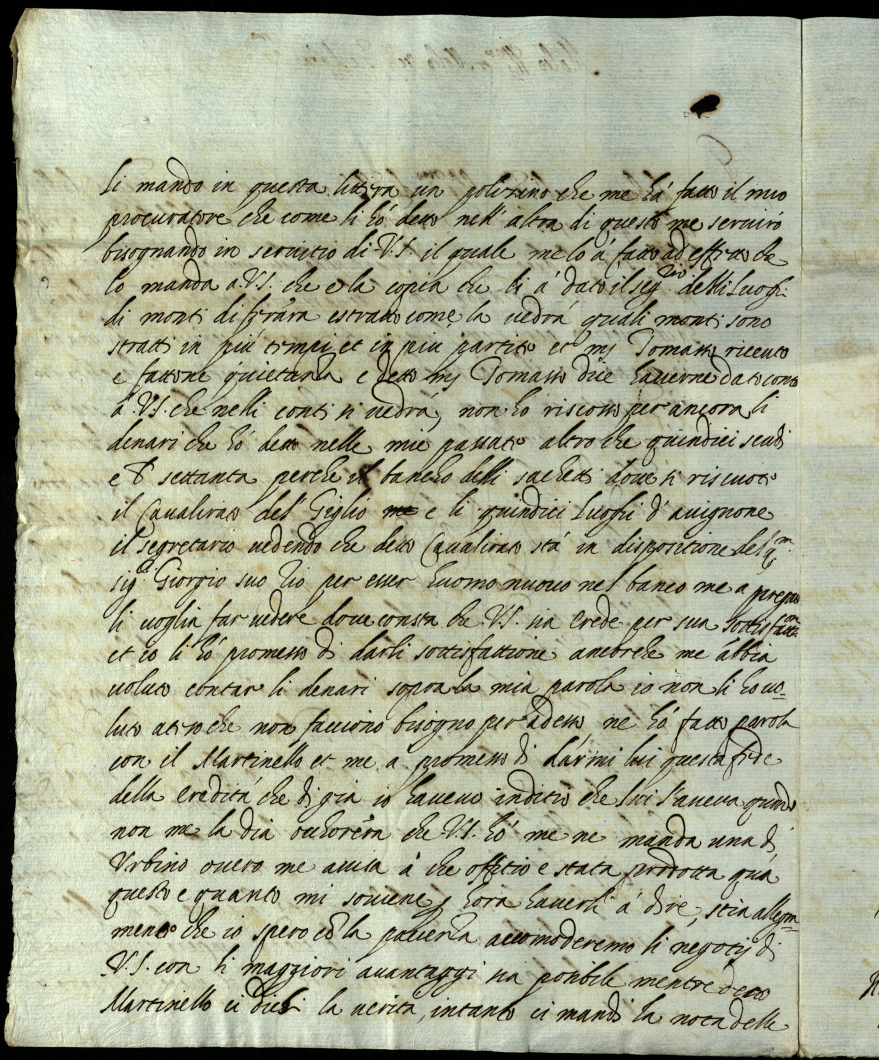 Li mando in questa littera un polizino che me há fatto il mio
procuratore che come li hó detto nell'altra di questo me serviró
bisognando in servitio di V.S. il quale me lo á fatto ad effetto che
lo manda a V.S. che e la copia che li á dato il seg.rio delli Luoghi
di monti di ferrara estratto come la vedrá quali monti sono
stratti in piu tempi et in piu partite et ms Tomasso riceuto
e fattone quietanza e detto ms Tomasso dice haverne dato conto
á V.S. che nelli conti si vedra, non ho riscosso per ancora li
denari che hó detto nelle mie passate altro che quindici scudi
e settanta perche il bancho delli sachetti dove si riscuote
il Cavalirato del Giglio e li quindici Luoghi d'avignone
il segretario vedendo che detto Cavalirato stá in dispositione del q.m
sig.r Giorgio suo Zio per esser huomo nuovo nel banco me a pregato
li voglia far vedere dove consta che V.S. sia Erede per sua sottisfatt.on
et io li hó promesso di darli sottisfattione ancorche me abbia
voluto contar li denari sopra la mia parola io non li ho vo-
luto atteso che non facciono bisogno per adesso ne hó fatto parola
con il Martinello et me a promesso di dármi lui questa fede
della Ereditá che di gia io havevo inditio che lui l'aveva quando
non me la dia ochorera che V.S. hó me ne manda una di
Urbino overo me avisa á che offitio e stata prodotta quá
questo e quanto mi soviene p hora haverli á dire, stia allegra-
mente che io spero cō la pacienza accomoderemo li negotij di
V.S. con li maggiori avantaggi sia posibile mentre detto
Martinello ci dichi la veritá, intanto ci mandi la nota delle